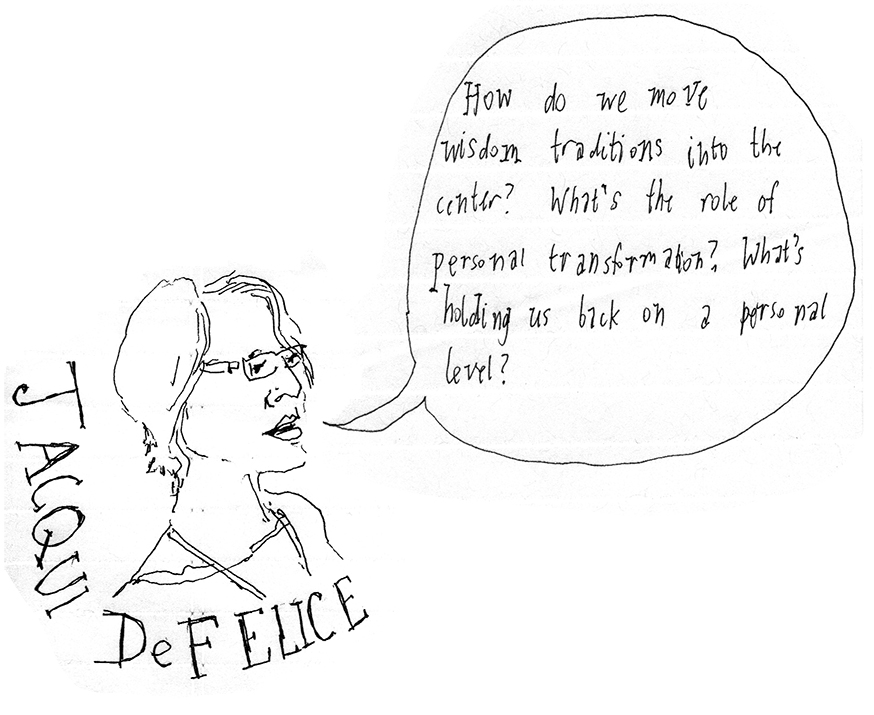 How do we move
wisdom traditions into the
center? What's the role of
personal transformation? What's
holding us back on a personal
level?
JACQUI
DeFELICE